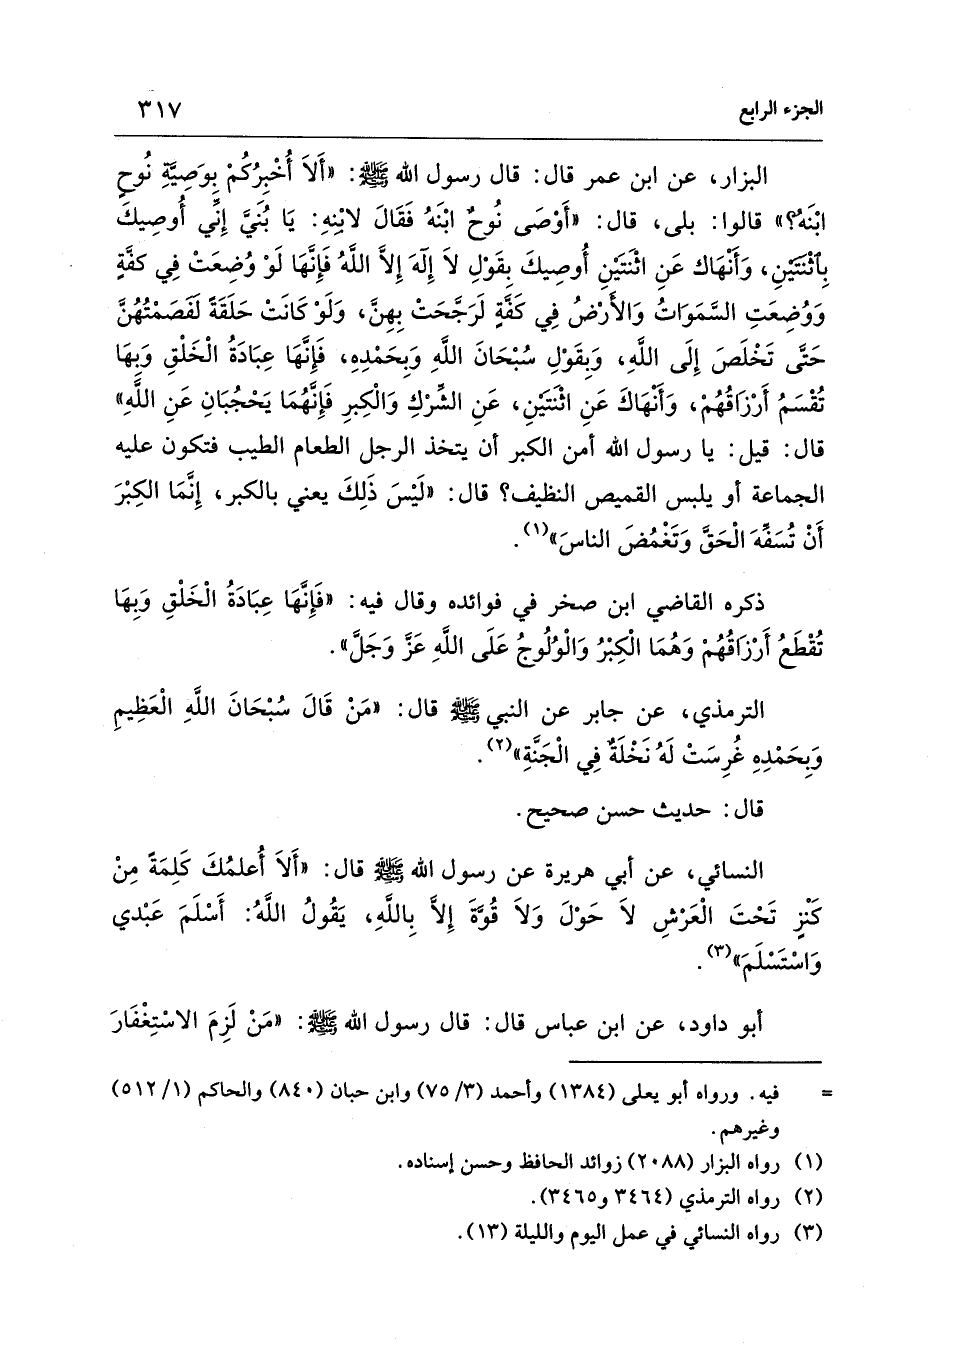 الجزء الرابع ٣١٧
البزار، عن ابن عمر قال: قال رسول الله ﷺ: «أَلاَ أُخْبِرُكُمْ بِوَصِيَّةِ نُوحٍ
ابْنَهُ؟» قالوا: بلى، قال: «أَوْصَى نُوحٌ ابْنَهُ فَقَالَ لابْنِهِ: يَا بُنَيَّ إِنِّي أُوصِيكَ
بِاثْنَتَيْنِ، وَأَنْهَاكَ عَنِ اثْنَتَيْنِ أُوصِيكَ بِقَوْلِ لاَ إِلَهَ إِلاَّ اللَّهُ فَإِنَّهَا لَوْ وُضِعَتْ فِي كَفَّةٍ
وَوُضِعَتِ السَّمَوَاتُ وَالأَرْضُ فِي كَفَّةٍ لَرَجَّحَتْ بِهِنَّ، وَلَوْ كَانَتْ حَلَقَةً لَفَصَمْتُهُنَّ
حَتَّى تَخْلَصَ إِلَى اللَّهِ، وَبِقَوْلِ سُبْحَانَ اللَّهِ وَبِحَمْدِهِ، فَإِنَّهَا عِبَادَةُ الْخَلْقِ وَبِهَا
تُقْسَمُ أَرْزَاقُهُمْ، وَأَنْهَاكَ عَنِ اثْنَتَيْنِ، عَنِ الشِّرْكِ وَالْكِبرِ فَإِنَّهُمَا يَحْجُبَانِ عَنِ اللَّهِ»
قال: قيل: يا رسول الله أمن الكبر أن يتخذ الرجل الطعام الطيب فتكون عليه
الجماعة أو يلبس القميص النظيف؟ قال: «لَيْسَ ذَلِكَ يعني بالكبر، إِنَّمَا الكِبْرَ
أَنْ تُسَفِّهَ الْحَقَّ وَتَغْمُضَ الناسَ»(١).
ذكره القاضي ابن صخر في فوائده وقال فيه: «فَإِنَّهَا عِبَادَةُ الْخَلْقِ وَبِهَا
تُقْطَعُ أَرْزَاقُهُمْ وَهُمَا الْكِبْرُ وَالْوُلُوجُ عَلَى اللَّهِ عَزَّ وَجَلَّ».
الترمذي، عن جابر عن النبي ﷺ قال: «مَنْ قَالَ سُبْحَانَ اللَّهِ الْعَظِيمِ
وَبِحَمْدِهِ غُرِسَتْ لَهُ نَخْلَةٌ فِي الْجَنَّةِ»(٢).
قال: حديث حسن صحيح.
النسائي، عن أبي هريرة عن رسول الله ﷺ قال: «أَلاَ أُعلمُكَ كَلِمَةً مِنْ
كَنْزٍ تَحْتَ الْعَرْشِ لاَ حَوْلَ وَلاَ قُوَّةَ إِلاَّ بِاللَّهِ، يَقُولُ اللَّهُ: أَسْلَمَ عَبْدي
وَاسْتَسْلَمَ»(٣).
أبو داود، عن ابن عباس قال: قال رسول الله ﷺ: «مَنْ لَزِمَ الاسْتِغْفَارَ
= فيه. ورواه أبو يعلى (١٣٨٤) وأحمد (٣/ ٧٥) وابن حبان (٨٤٠) والحاكم (١/ ٥١٢)
وغيرهم.
(١) رواه البزار (٢٠٨٨) زوائد الحافظ وحسن إسناده.
(٢) رواه الترمذي (٣٤٦٤ و٣٤٦٥).
(٣) رواه النسائي في عمل اليوم والليلة (١٣).